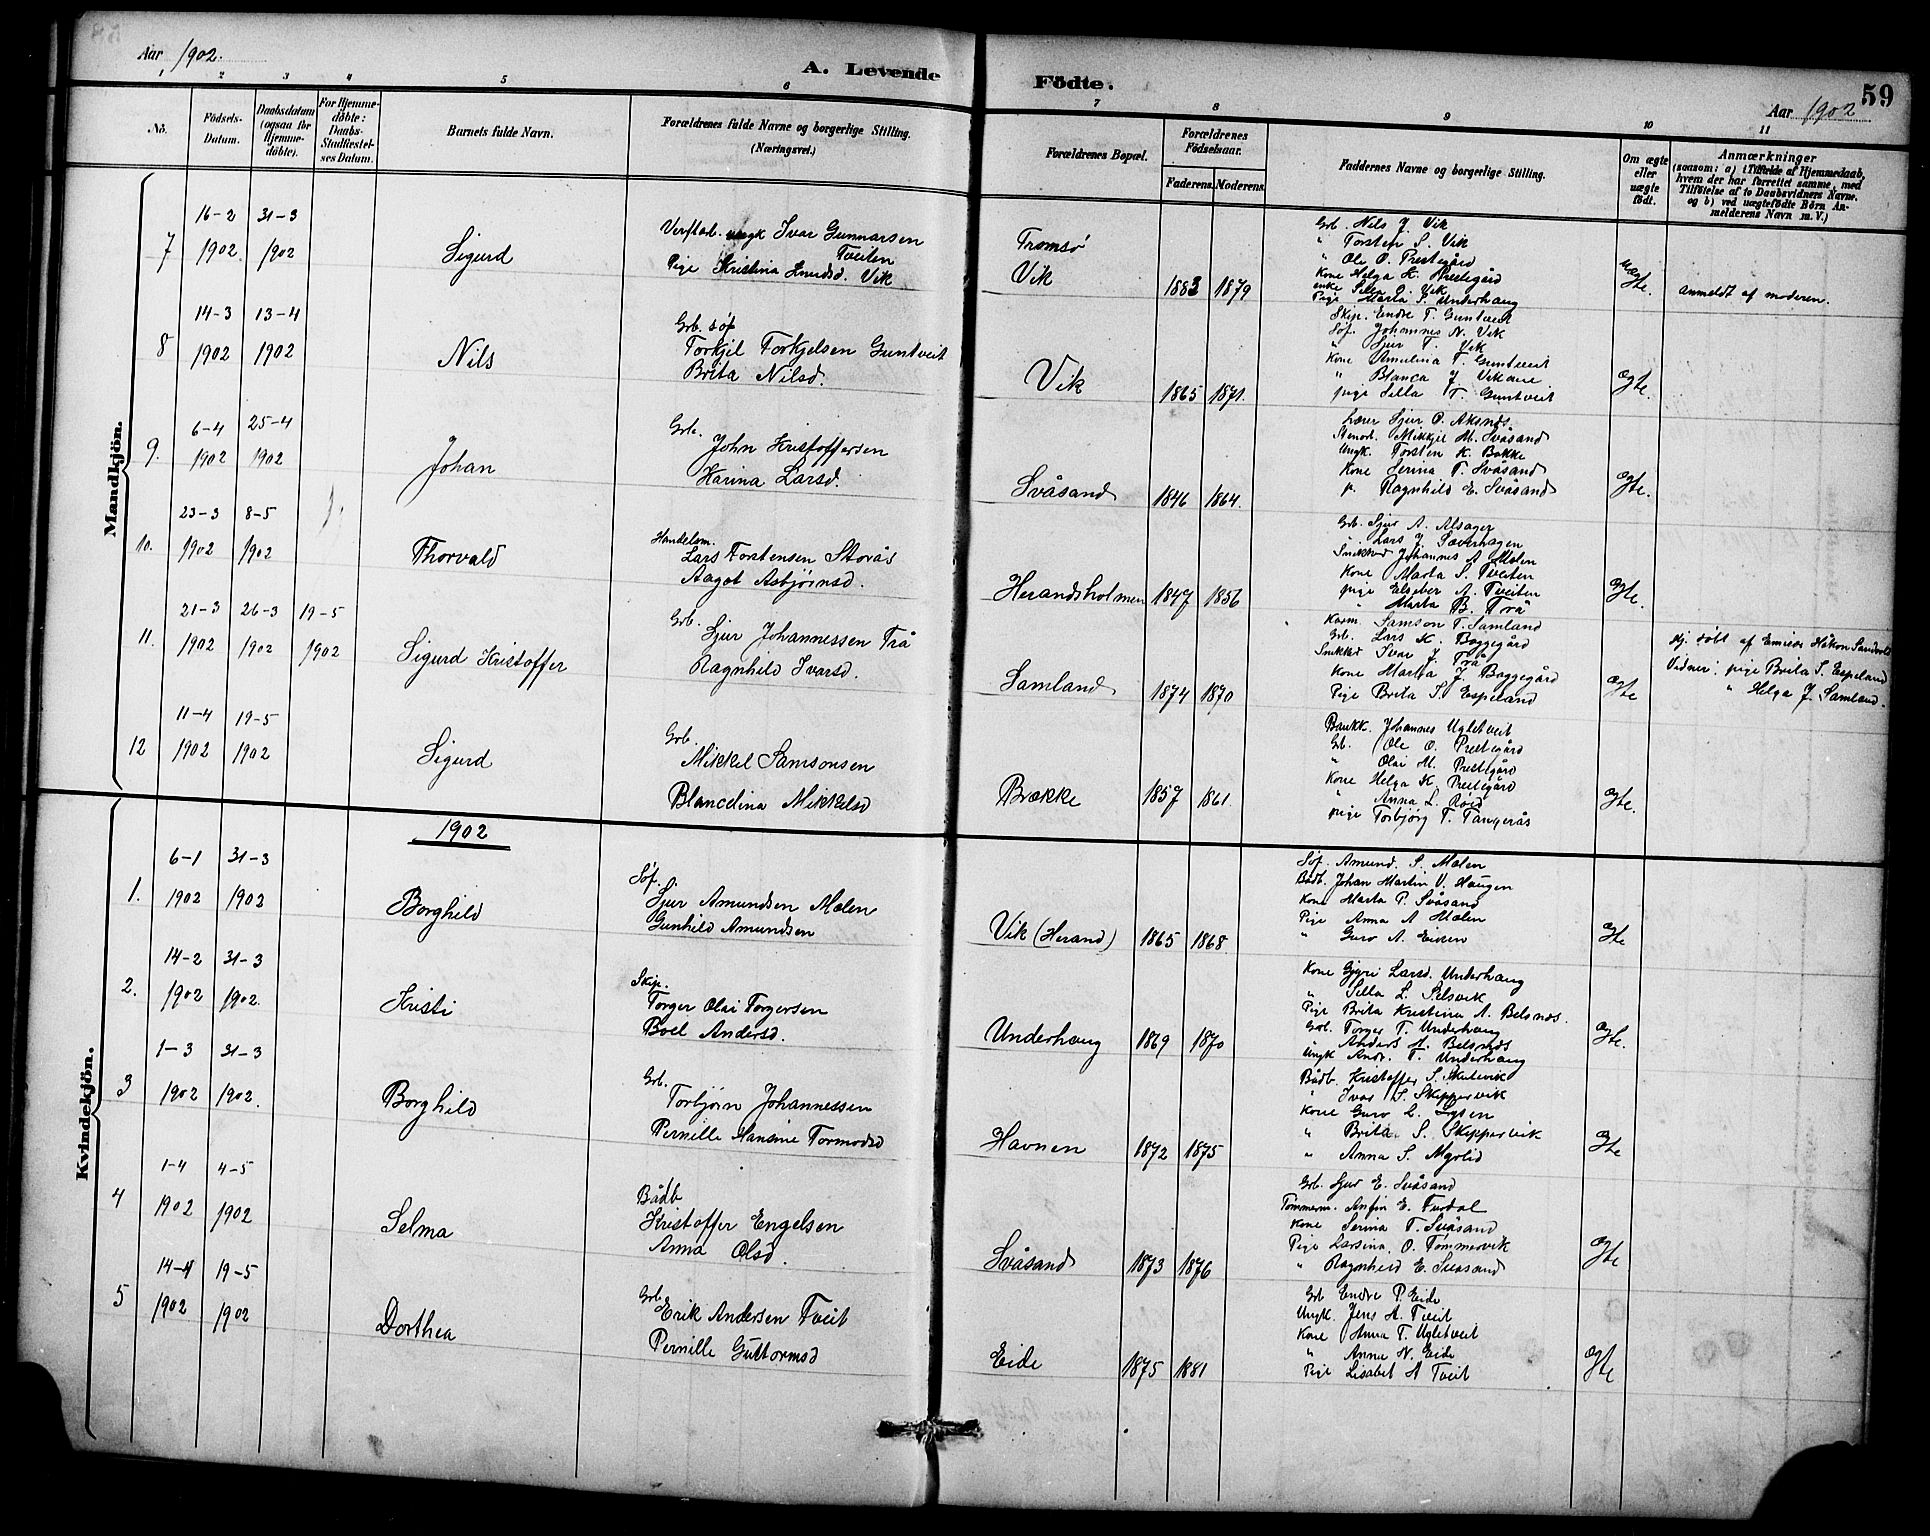 Aar 1902.
A. Levende Födte.
59
Aar 1902
1 2 3 4 5 6 7 8 9 10 11
No.
Födsels-Datum.
Daabsdatum (ogsaa for Hjemmedöbte).
For Hjemmedöbte: Daabs-Stadfæstelses Datum.
Barnets fulde Navn.
Forældrenes fulde Navne og borgerlige Stilling. (Næringsvei.)
Forældrenes Bopæl.
Forældrenes Födselsaar.
Faderens. Moderens.
Faddernes Navne og borgerlige Stilling.
Om ægte eller uægte födt.
Anmærkninger
(saasom: a) i Tilfælde af Hjemmedaab, hvem der har forrettet samme, med Tilföielse af to Daabsvidners Navne. og b) ved uægtefödte Börn Anmelderens Navn m. V.)
Mandkjön.
7
16-2 1902.
31-3 1902
Sigurd
ungk Ivar Gunnarsen Tveiten
Pige Kristina Knudsd. Vik
Tromsø
Vik
1883 1879
Grb. Nils J. Vik
" Torsten S. Vik
" Ole O. Prestegård
Kone Helga K. Prestegård
enke Silla O. Vik
Pige Marta S. Underhaug
uægte.
Anmeldt af moderen.
8
14-3 1902
13-4 1902
Nils
Grb. søf
Torkjel Torkjelsen Guntveit
Brita Nilsd.
Vik
1865 1871.
Skip. Endre T. Guntveit
Søf. Johannes N. Vik
" Sjur T. Vik
Kone Amelina T. Guntveit
" Blanca J. Vikane
pige Silla T. Guntveit
Ægte.
9.
6-4 1902
25-4 1902
Johan
Grb.
John Kristoffersen
Karina Larsd.
Svåsand
1846 1864.
Lærer Sjur O. Aksnes
Mikkjel M. Svåsand
Ungk. Torsten K. Bakke
Kone Serina T. Svåsand
p. Ragnhild E. Svåsand
Ægte.
10.
23-3 1902
8-5 1902
Thorvald
Handelsm.
Lars Torstensen Storås
Aagot Asbjørnsd.
Herandsholmen
1847 1856
Grb. Sjur A. Alsager
" Lars J. Sæverhagen
Snikker Johannes A. Mælen
Kone Marta S. Tveiten
pige Elseber A. Tveiten
" Marta B. Trå
Ægte.
11.
21-3 1902
26-3 1902
19-5 1902
Sigurd Kristoffer
Grb.
Sjur Johannessen Trå
Ragnhild Ivarsd.
Samland
1874 1870
Kaarm. Samson T. Samland
Grb. Lars K. Byggegård
Snikker Ivar J. Trå
Kone Marta J. Byggegård
Pige Brita S. Espeland
Ægte
Hj. døbt af Emisær Håkon Sandvold
Vidner: pige Brita S. Espeland
" Helga J. Samland.
12
11-4 1902
19-5 1902
Sigurd
Grb.
Mikkel Samsonsen
Blancelina Mikkelsd
Brække
1857 1861.
Johannes Ugletveit
Gb. Ole O. Prestegård
" Olai M. Prestegård
Kone Helga K. Prestegård
" Anna L. Røid
pige Torbjørg T. Tangerås
Ægte.
1902
Kvindekjön.
1.
6-1 1902
31-3 1902
Borghild
Søf.
Sjur Amundsen Mælen
Gunhild Amundsen
Vik (Herand)
1865 1868.
Søf. Amund. S. Mælen
Bådb. Johan Martin V. Haugen
Kone Marta P. Svåsand
Pige Anna A Mælen
" Guro A. Eiken
Ægte
2.
14-2 1902
31-3 1902.
Kristi
Skip.
Torger Olai Torgersen
Boel Andersd.
Underhaug
1869 1870
Kone Gjyri Larsd. Underhaug
" Silla L. Selsvik
Pige Brita Kristina A. Belsnes.
Grb. Torger T. Underhaug
" Anders H. Belsnes
Ungk Andr. T. Underhaug
Ægte.
3
1-3 1902
31-3 1902.
Borghild
Grb.
Torbjørn Johannessen
Pernille Hansine Tormodsd
Havnen
1872 1875
Bådb. Kristoffer S. Skutevik
" Ivar S. Skippervik
Kone Guro L. Lysen
" Brita S. Skippervik
" Anna S. Myrlid
Ægte
4
1-4 1902
4-5 1902
Selma
Bådb
Kristoffer Engelsen
Anna Olsd.
Svåsand
1873 1876
Grb. Sjur E. Svåsand
Tømmerm. Anfin E. Furdal
Kone Serina T. Svåsand
Pige Larsina. O. Tømmervik
" Ragnhild E. Svåsand
Ægte
5
14-4 1902
19-5 1902
Dorthea
Grb.
Erik Andersen Tveit
Pernille Guttormsd
Eide
1875 1881
Grb Endre P. Eide
Ungk. Jens A. Tveit
Kone Anna T. Ugletveit
" Anna N. Eide
Pige Lisabet A Tveit
Ægte